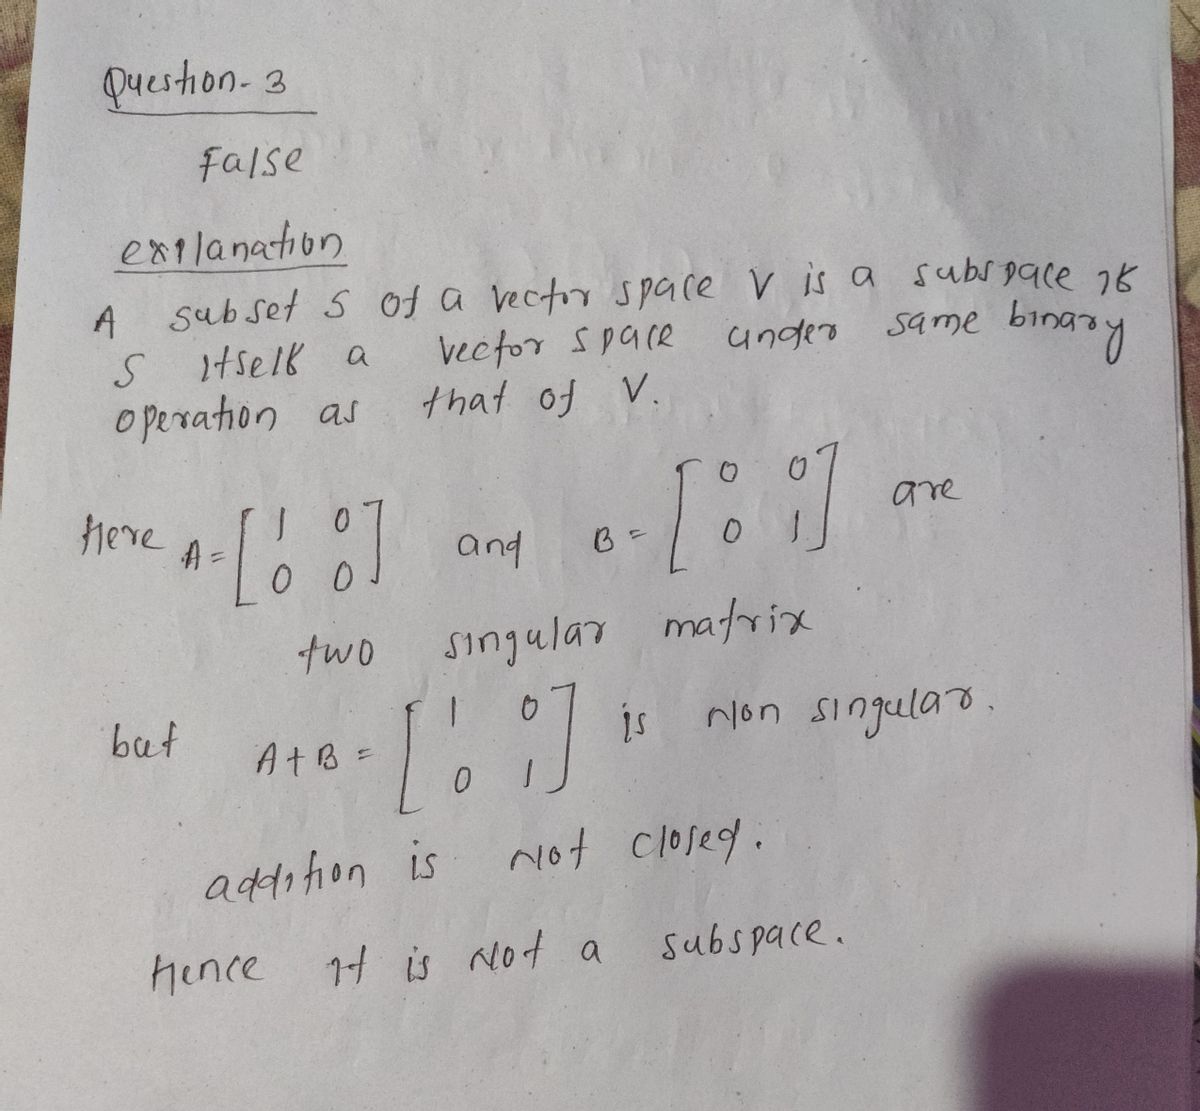 Question-3
False
explanation
A subset S of a vector space V is a subspace if
S itself a vector space under same binary
operation as that of V.
Here A = [1 0 0 0] and B = [0 0 0 1] are
two singular matrix
but A+B = [1 0 0 1] is Non singular.
addition is Not closed.
Hence it is Not a subspace.